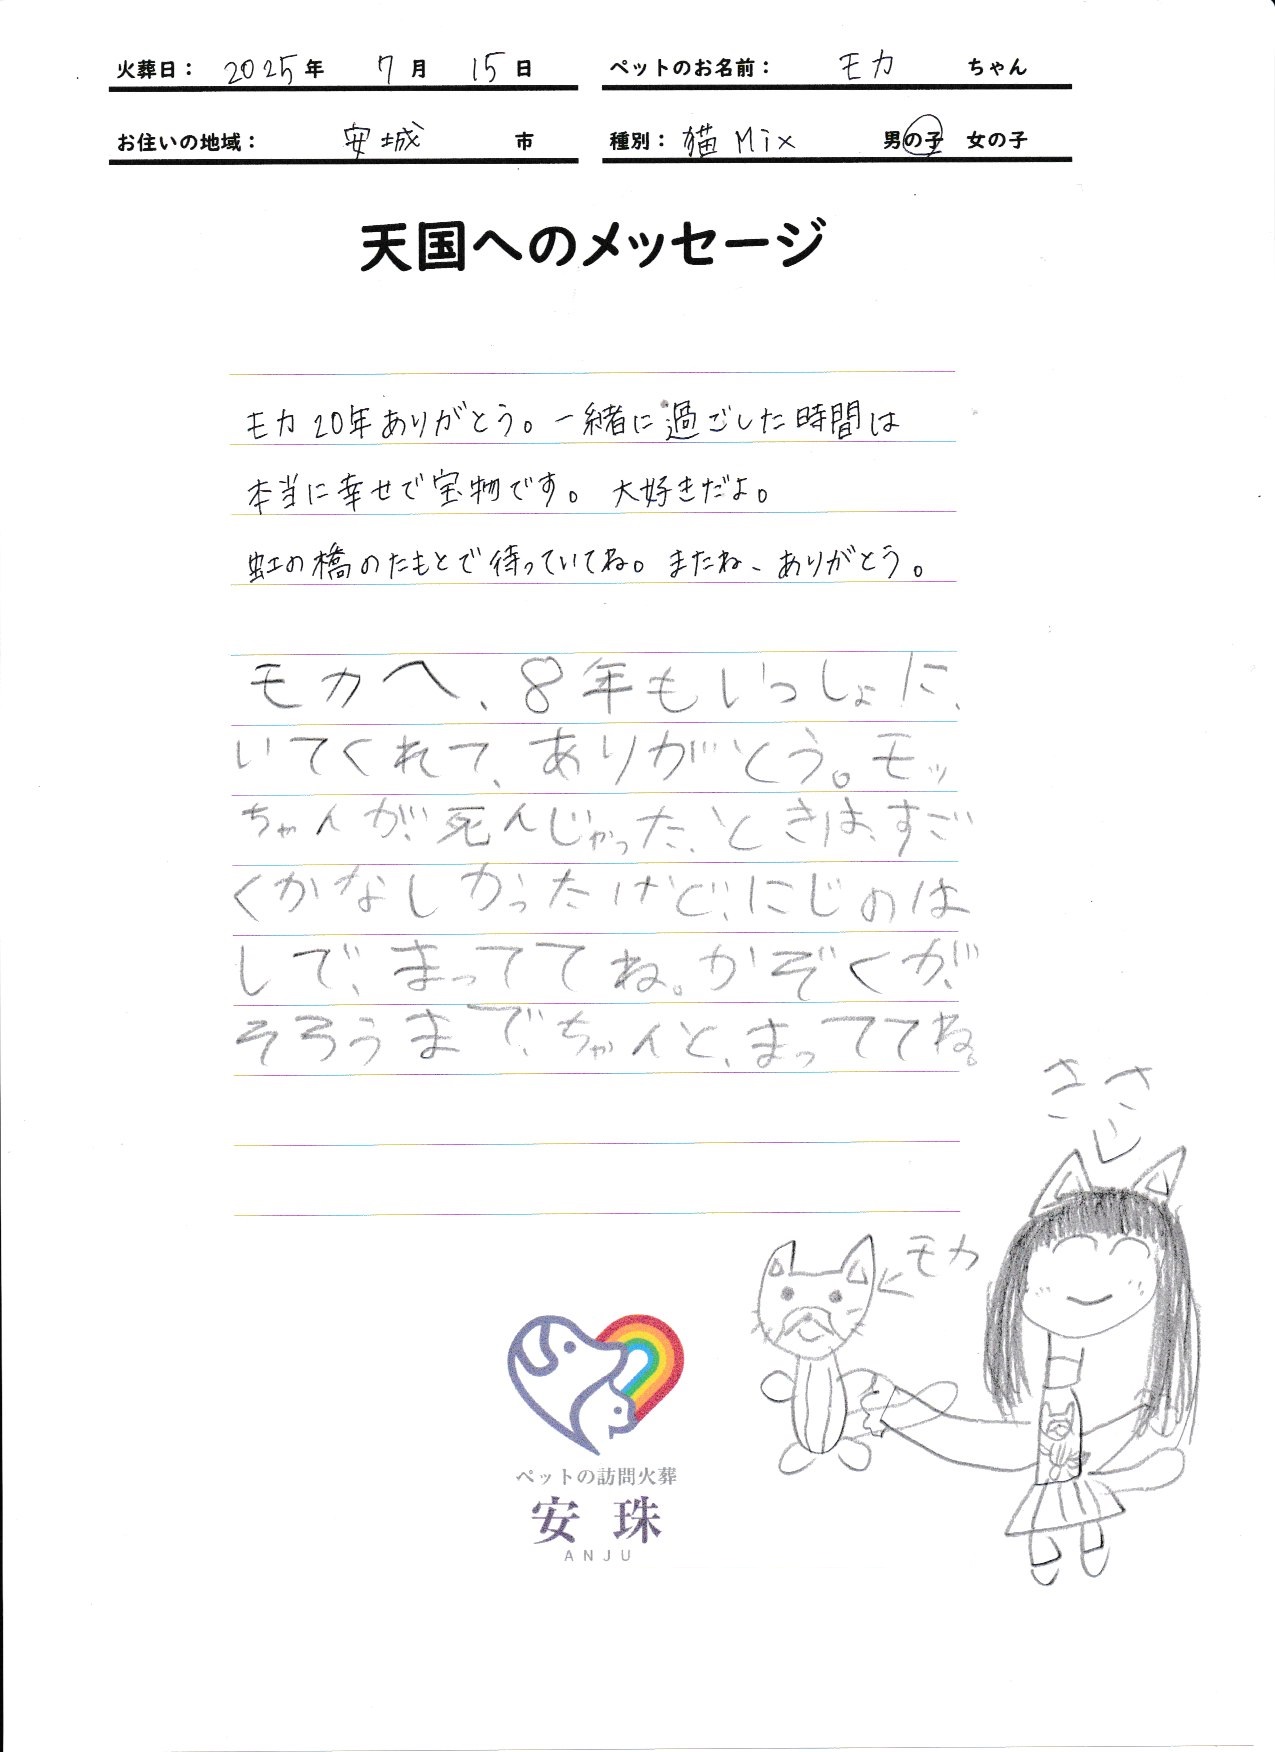 火葬日： 2025年 7月 15日
ペットのお名前： モカ ちゃん
お住いの地域： 安城 市
種別： 猫 Mix 男の子 女の子
天国へのメッセージ
モカ 20年ありがとう。一緒に過ごした時間は
本当に幸せで宝物です。大好きだよ。
虹の橋のたもとで待っていてね。またね、ありがとう。
モカへ、8年もいっしょに、
いてくれて、ありがとう。モッ
ちゃんが、死んじゃった、ときは、すご
くかなしかったけど、にじのは
しで、まっててね。かぞくが、
そろうまで、ちゃんと、まっててね。
ささ
モカ
ペットの訪問火葬
安珠
ANJU